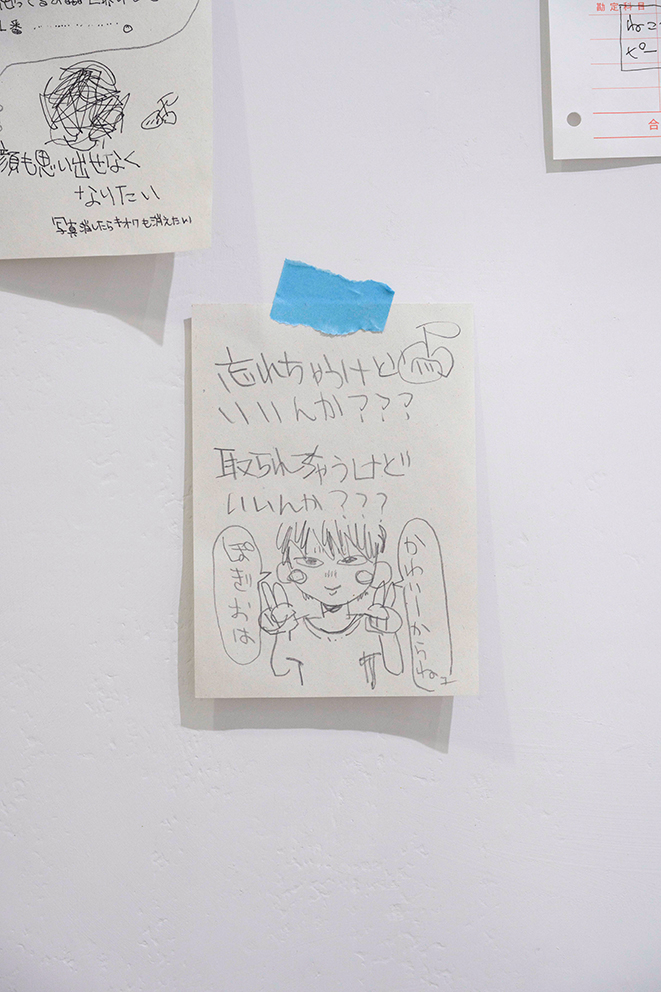 1番 ……………。
顔も思い出せなく
なりたい
写真消したらキオクも消えたい
勘定科目
ねこ
ペー
合
忘れちゃうけど
いいんか？？？
取られちゃうけど
いいんか？？？
ぽぎおは
かわいーからねェ